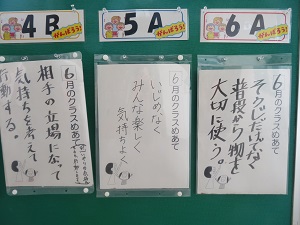 4B
がんばろう!
5A
がんばろう!
6A
がんばろう!
6月のクラスめあて
相手の立場になって
気持ちを考えて
行動する。
6月のクラスめあて
いじめなく
みんな楽しく
気持ちよく
6月のクラスめあて
そうじだけでなく
普段から物を
大切に使う。